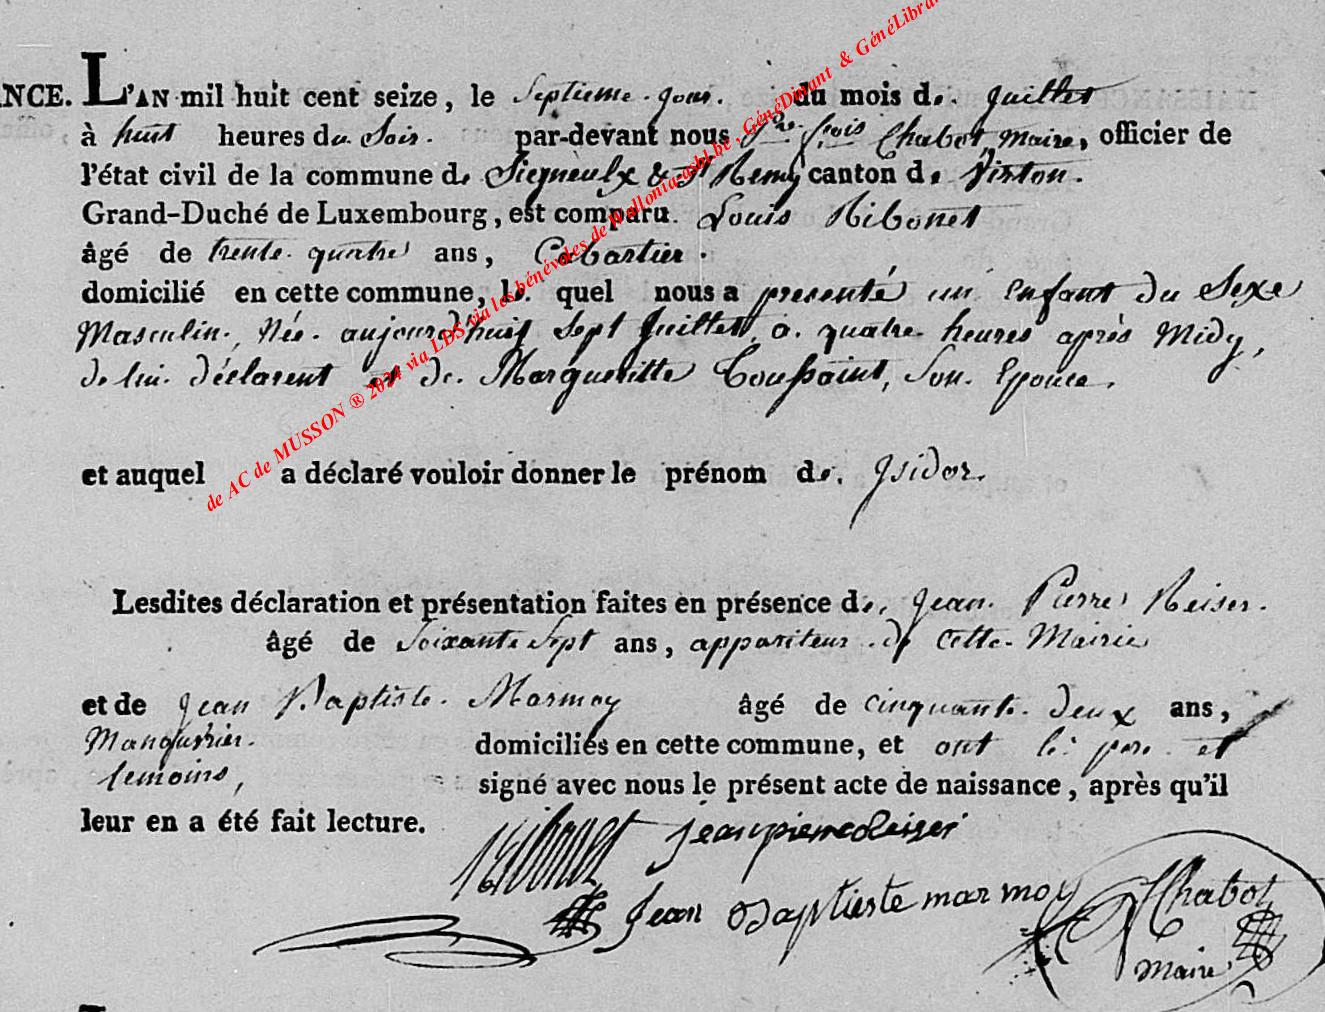 NCE. L'AN mil huit cent seize, le Septieme jour. du mois de. Juillet
à huit heures du Soir. par-devant nous Jn. frois Chabot, Maire, officier de
l'état civil de la commune de Signeulx & St Remy canton de Virton.
Grand-Duché de Luxembourg, est comparu. Louis Ribonet
âgé de trente quatre ans, Cabartier.
domicilié en cette commune, le. quel nous a presenté un Enfant du Sexe
Masculin, Née. aujourd'huit Sept Juillet, a. quatre heures après Midy,
de lui déclarent et de. Margueritte Toussaint, Son. Epouce.
et auquel a déclaré vouloir donner le prénom de. Jsidor.
Lesdites déclaration et présentation faites en présence de. Jean. Pierre Reiser.
âgé de Soixante Sept ans, appariteur de Cette Mairie
et de Jean Baptiste. Marmoy âgé de Cinquante. Deux ans,
domiciliés en cette commune, et ont le pere et
temoins, signé avec nous le présent acte de naissance, après qu'il
leur en a été fait lecture.
Ribonet Jean pierre Reiser
Jean Baptieste marmoy Chabot
Maire
de AC de MUSSON ® 2024 via LDS via les bénévoles de Wallonia-asbl.be, GénéDinant & GénéLibra